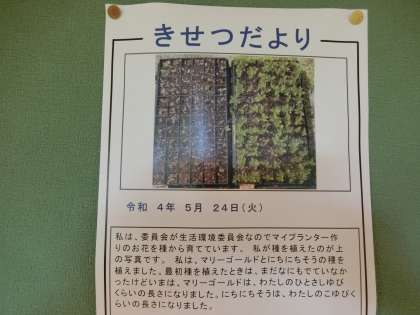 きせつだより
令和 4年 5月 24日(火)
私は、委員会が生活環境委員会なのでマイプランター作
りのお花を種から育てています。 私が種を植えたのが上
の写真です。 私は、マリーゴールドとにちにちそうの種を
植えました。最初種を植えたときは、まだなにもでていなか
ったけどいまは、マリーゴールドは、わたしのひとさしゆび
くらいの長さになりました。にちにちそうは、わたしのこゆびく
らいの長さになりました。